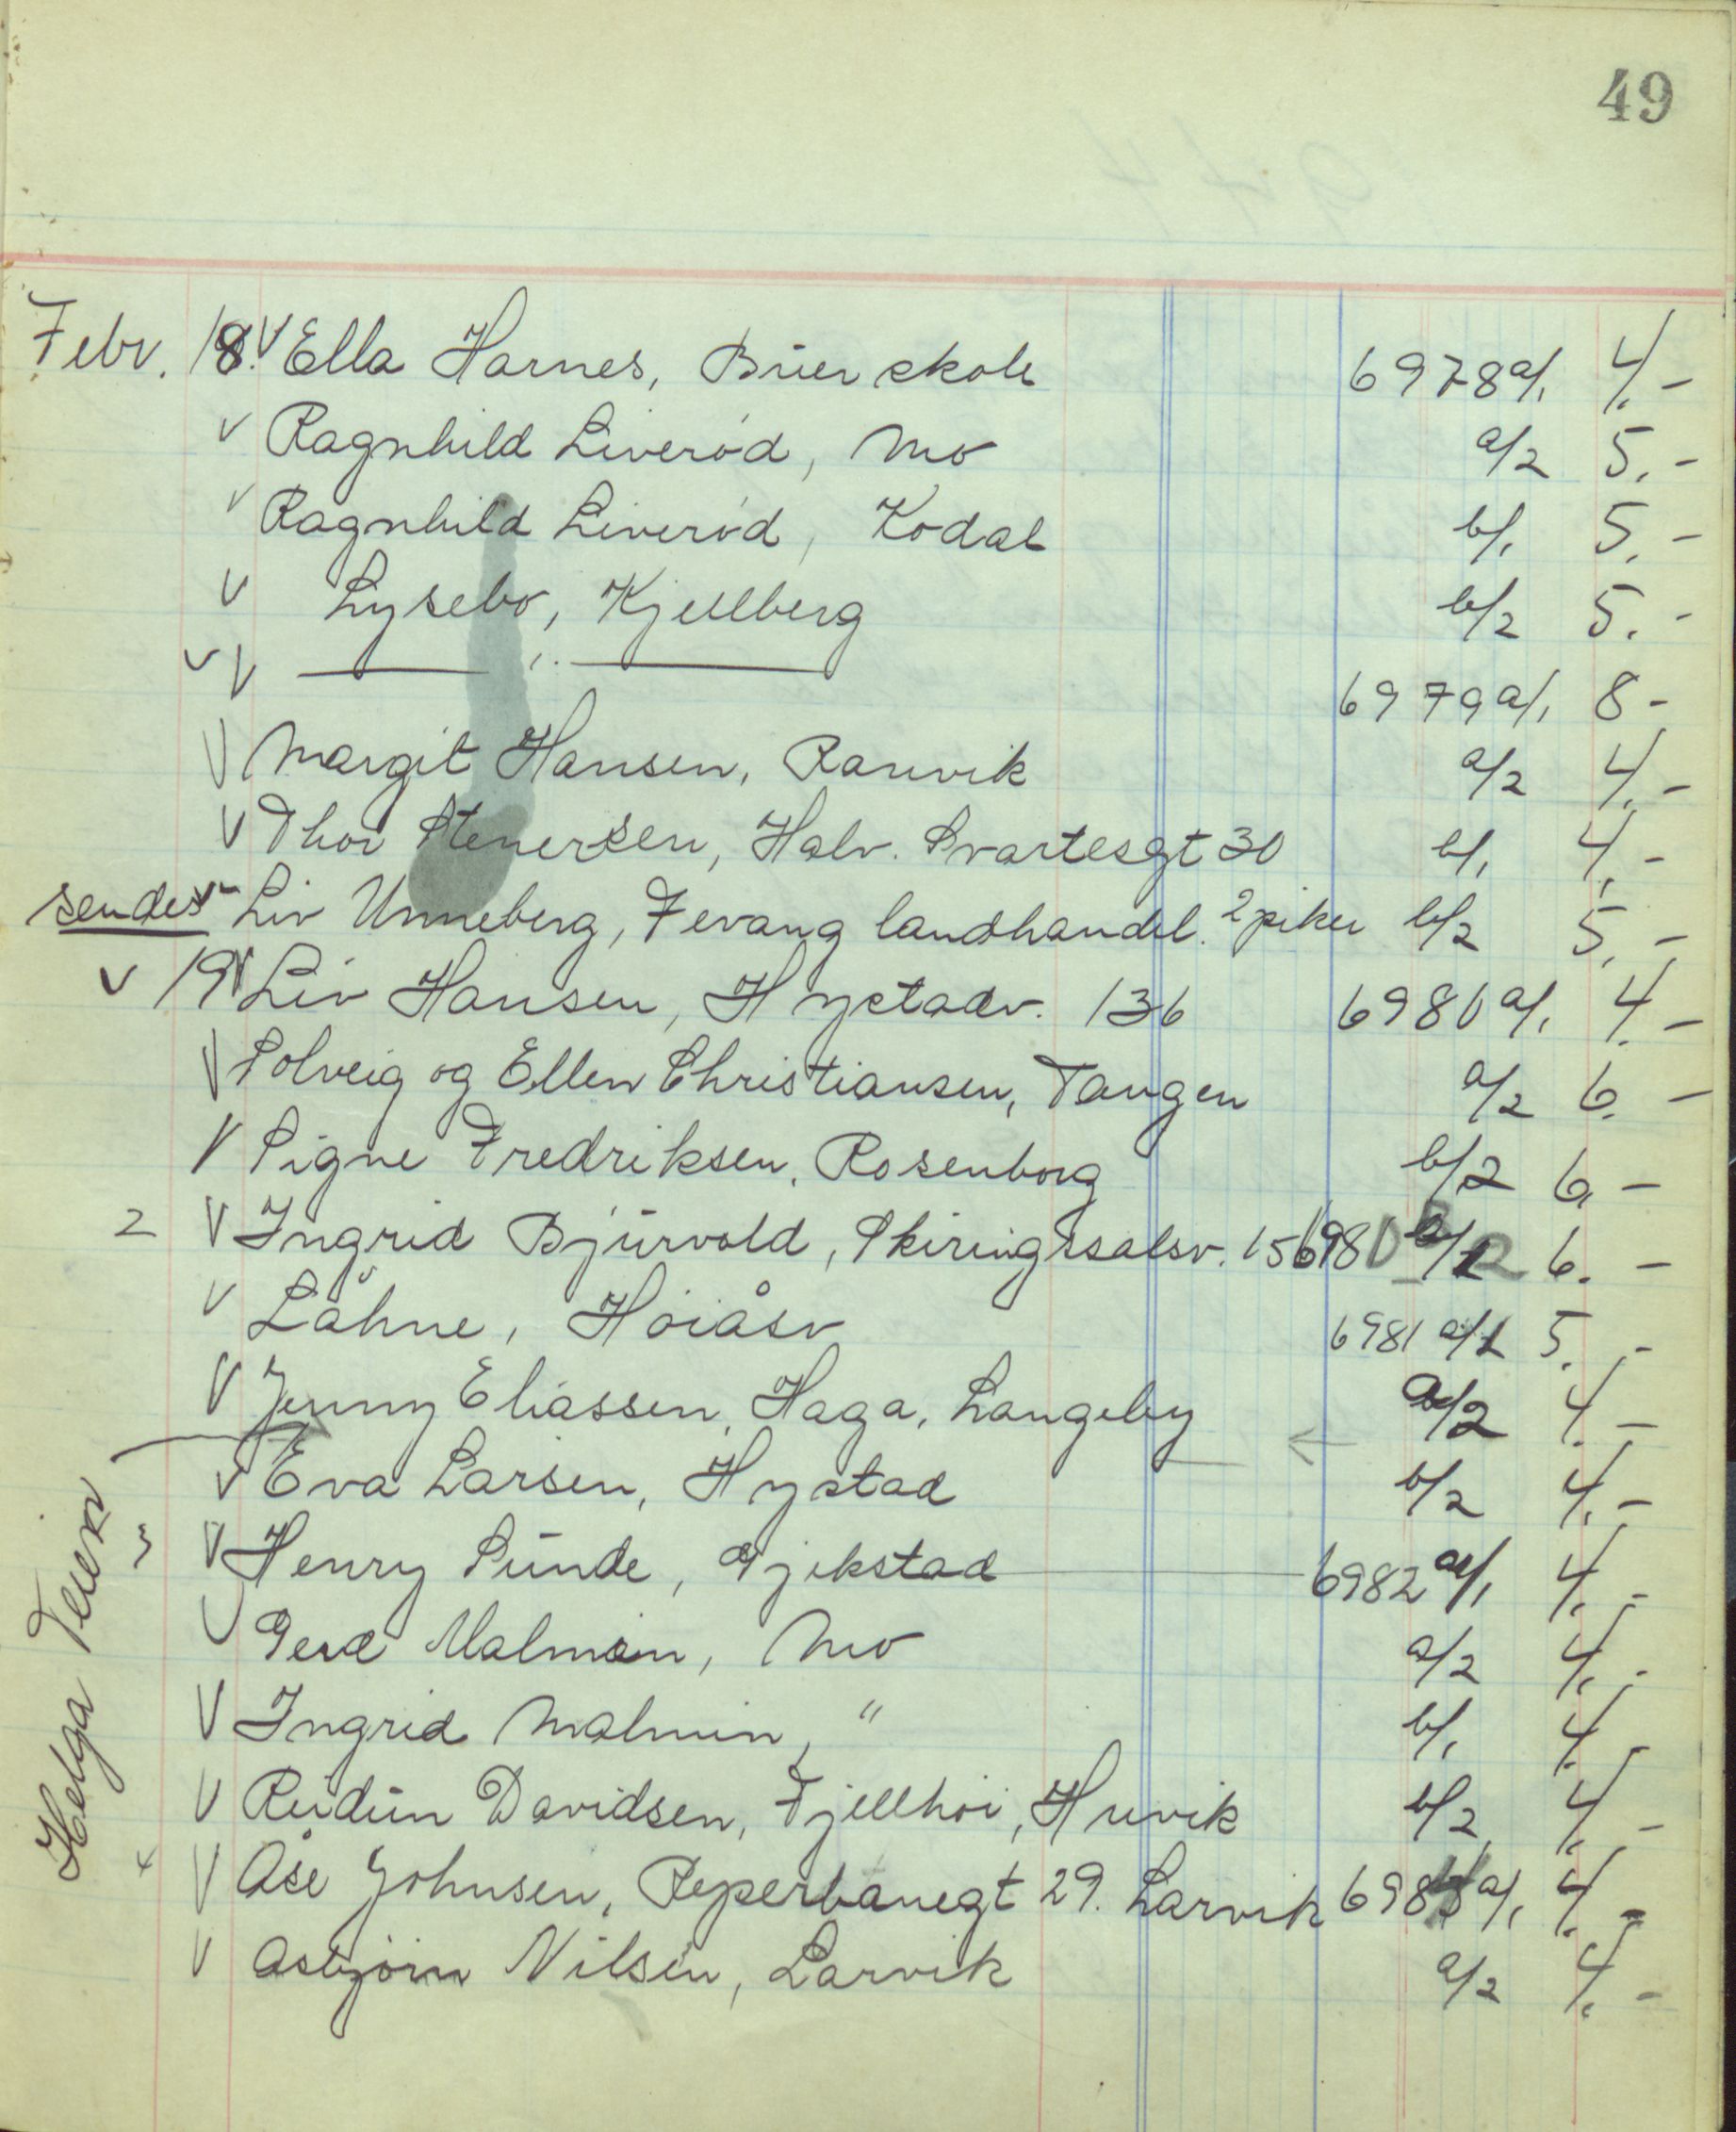 49
Febr. 18. V Ella Harnes, Buer skole 6978 a/1 4.-
V Ragnhild Liverød, Mo a/2 5.-
V Ragnhild Liverød, Kodal b/1 5.-
V Lysebo, Kjellberg b/2 5.-
V V —— " —— 6979 a/1 8-
V Margit Hansen, Ranvik a/2 4.-
V Thor Stenersen, Halv. Svartesgt 30 b/1 4.-
sendes V Liv Unneberg, Fevang landhandel. 2 piker b/2 5.-
V 19 V Liv Hansen, Hystadv. 136 6980 a/1 4.-
V Solveig og Ellen Christiansen, Tangen a/2 6.-
V Signe Fredriksen, Rosenborg b/2 6.-
2 V Ingrid Bjurvold, Skiringssalsv. 15 6980 B/2 6.-
V Låhne, Høiåsv 6981 a/1 5.-
V Jenny Eliassen, Haga, Langeby a/2 4.-
V Eva Larsen, Hystad b/2 4.-
3 V Henry Sunde, Gjekstad 6982 a/1 4.-
V Gerd Malmin, Mo a/2 4.-
V Ingrid Malmin, " b/1 4.-
V Reidun Davidsen, Fjellhøi, Huvik b/2 4.-
4 V Åse Johnsen, Reperbanegt 29. Larvik 6983 a/1 4.-
V Asbjørn Nilsen, Larvik a/2 4.-
Helga